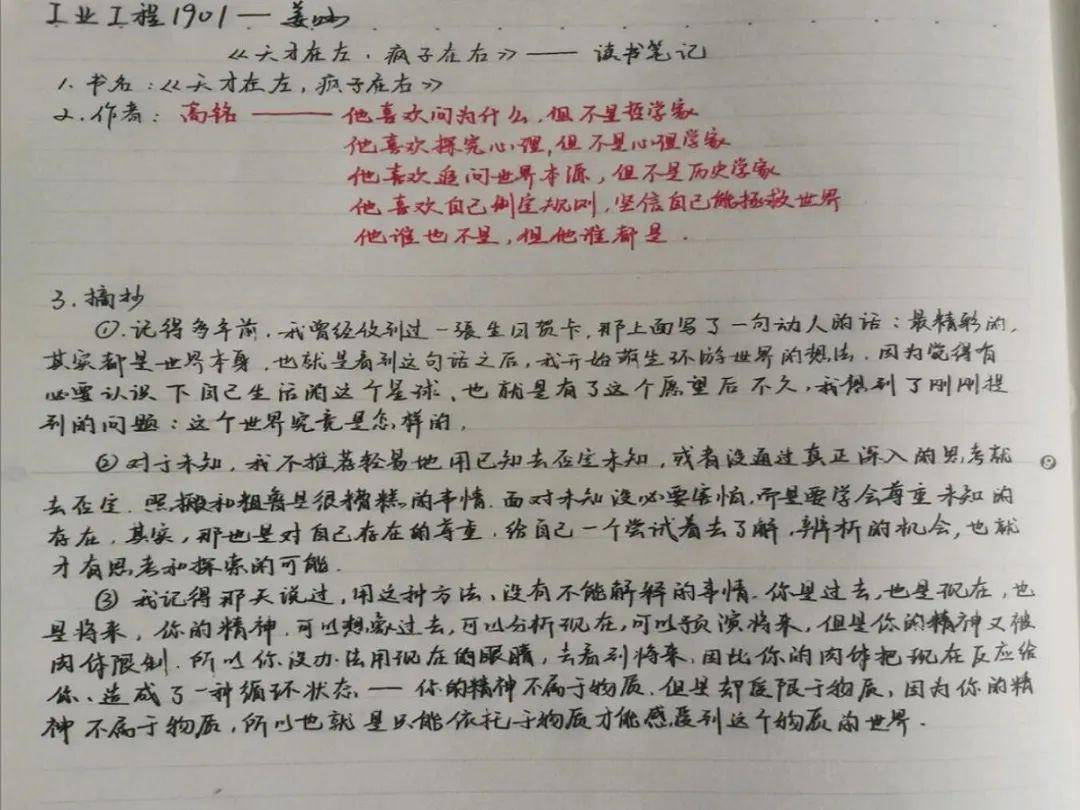 工业工程1901—姜
《天才在左.疯子在右》——读书笔记
1.书名:《天才在左,疯子在右》
2.作者:高铭——他喜欢问为什么,但不是哲学家
他喜欢探究心理,但不是心理学家
他喜欢追问世界本源,但不是历史学家
他喜欢自己制定规则,坚信自己能拯救世界
他谁也不是,但他谁都是.
3.摘抄
①.记得多年前.我曾经收到过一张生日贺卡,那上面写了一句动人的话:最精彩的,
其实都是世界本身.也就是看到这句话之后,我开始萌生环游世界的想法.因为觉得有
必要认识下自己生活的这个星球、也就是有了这个愿望后不久,我想到了刚刚提
到的问题:这个世界究竟是怎样的,
②对于未知,我不推荐轻易地用已知去否定未知,或者没通过真正深入的思考就
去否定.照搬和粗鲁是很糟糕的事情.面对未知没必要害怕,而是要学会尊重未知的
存在.其实,那也是对自己存在的尊重.给自己一个尝试着去了解,辨析的机会,也就
才有思考和探索的可能.
③我记得那天说过,用这种方法、没有不能解释的事情.你是过去,也是现在,也
是将来,你的精神.可以想象过去,可以分析现在,可以预演将来,但是你的精神又被
肉体限制.所以你没办法用现在的眼睛,去看到将来.因此你的肉体把现在反应给
你、造成了一种循环状态——你的精神不属于物质.但是却受限于物质,因为你的精
神不属于物质,所以也就是只能依托于物质才能感受到这个物质的世界.